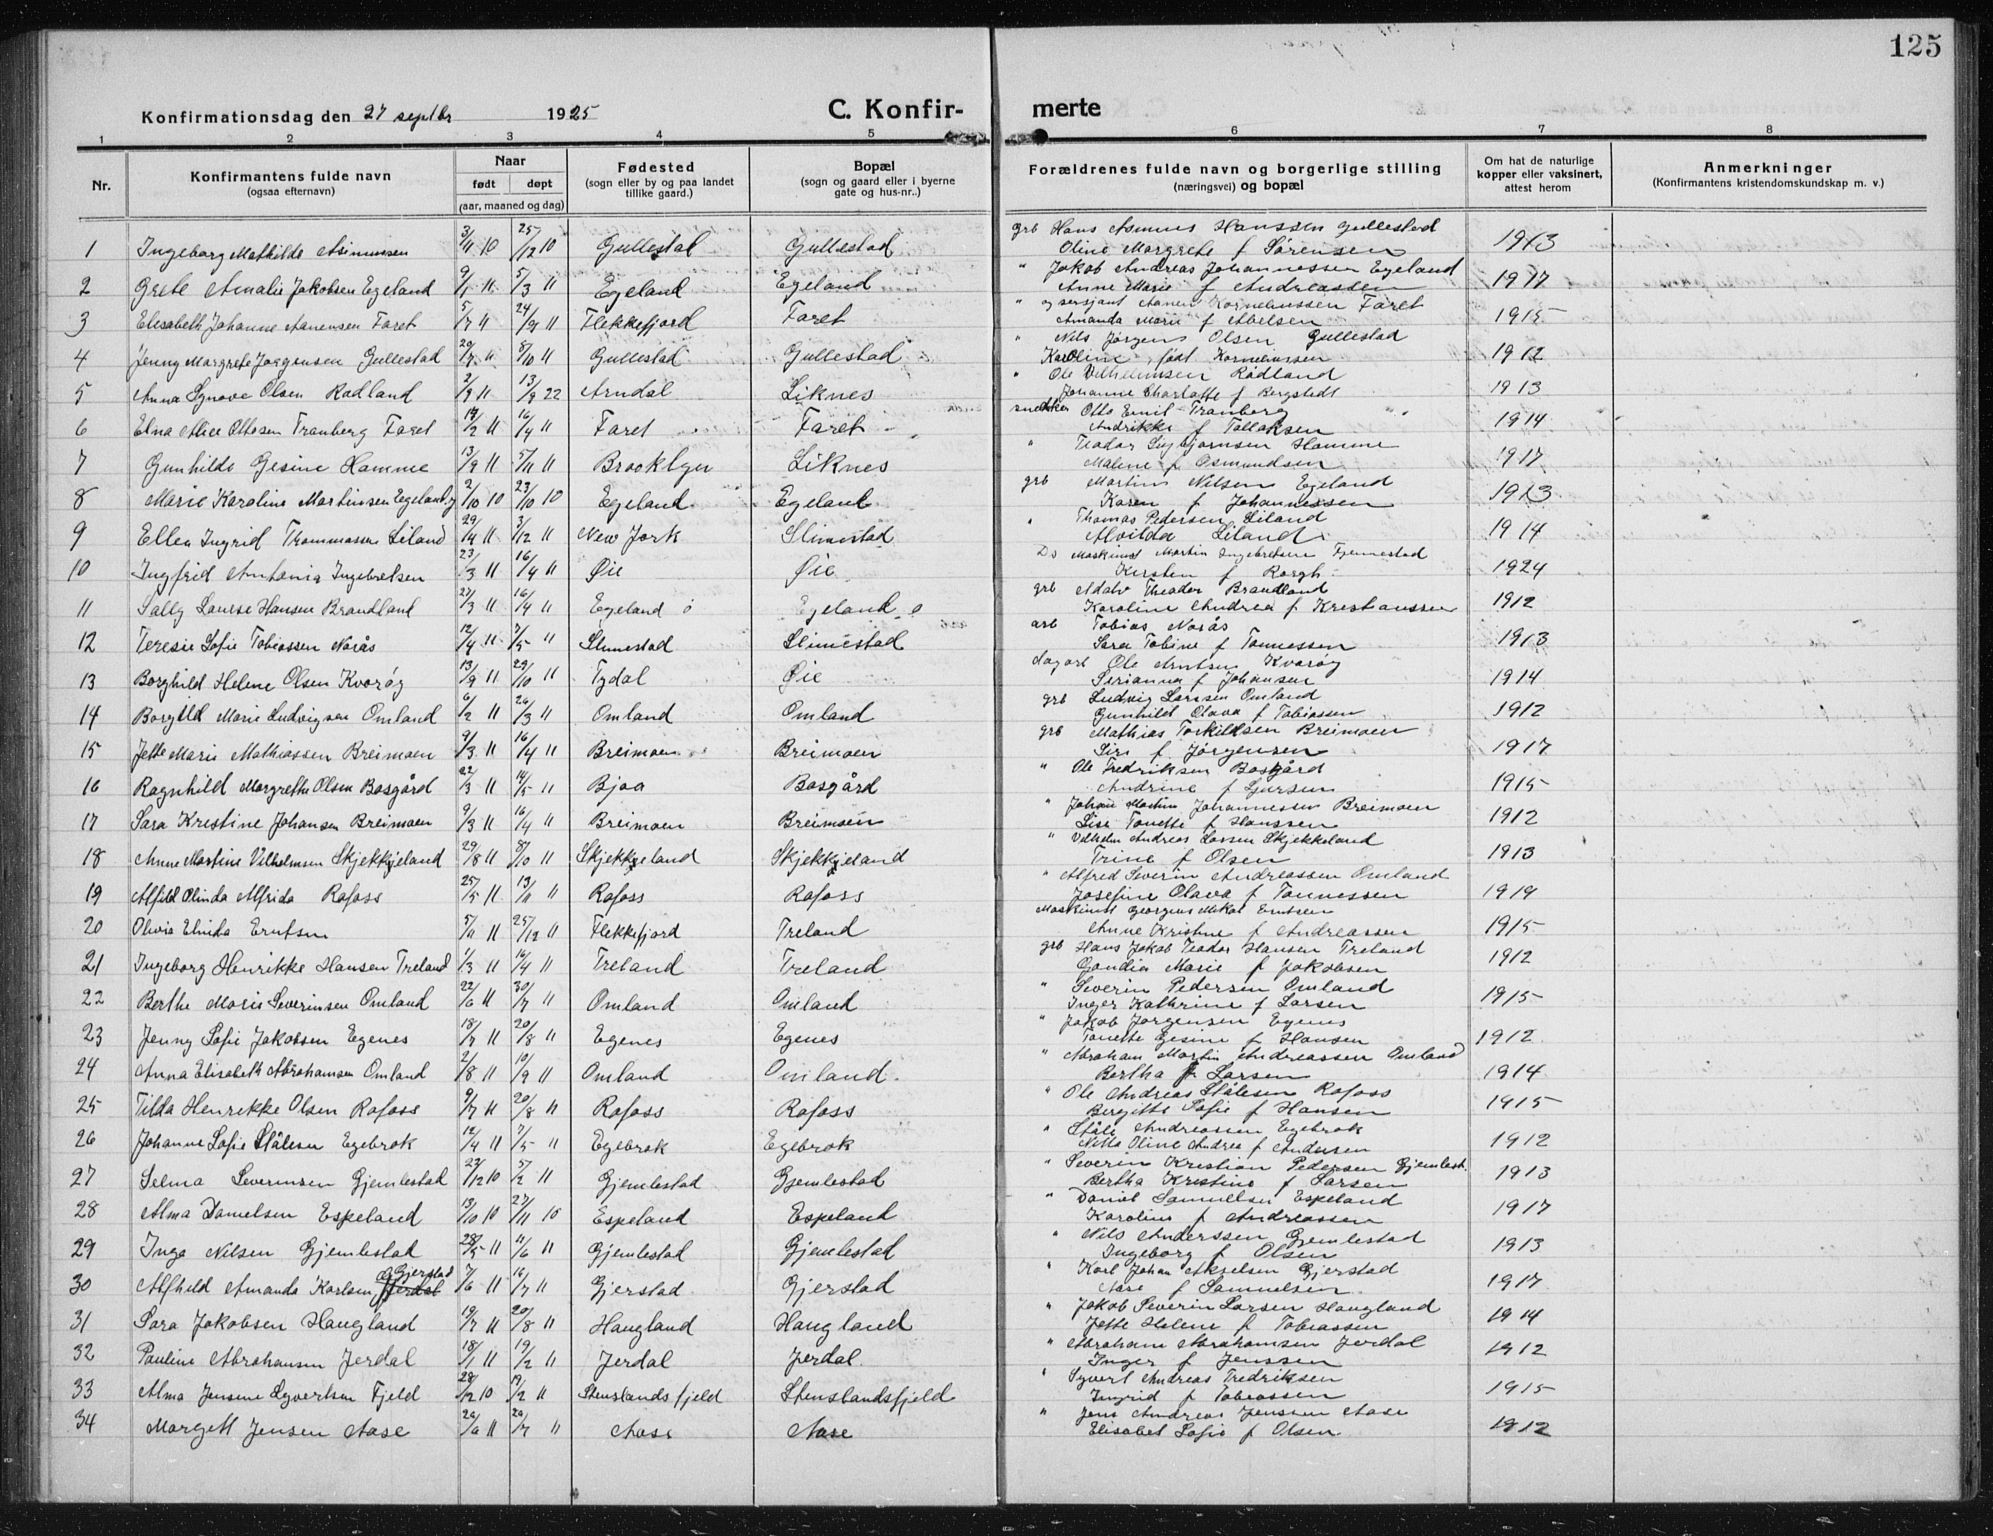 125
Konfirmationsdag den 27 septbr 1925 C. Konfir- merte
1 2 3 4 5 6 7 8
Nr. Konfirmantens fulde navn (ogsaa efternavn) Naar født døpt (aar, maaned og dag) Fødested (sogn eller by og paa landet tillike gaard.) Bopæl (sogn og gaard eller i byerne gate og hus-nr..) Forældrenes fulde navn og borgerlige stilling (næringsvei) og bopæl Om hat de naturlige kopper eller vaksinert, attest herom Anmerkninger (Konfirmantens kristendomskundskap m. v.)
1 Ingeborg Mathilde Asmunsen 3/11 10 25/12 10 Gullestad Gullestad grb Hans Asmus Hanssen Gullestad 1913
Oline Margrete f Sørensen
2 Grete Amalie Jakobsen Egeland 9/1 11 5/3 11 Egeland Egeland " Jakob Andreas Johannessen Egeland 1917
Anne Marie f Andreassen
3 Elisabeth Johanne Aanensen Faret 5/7 11 24/9 11 Flekkefjord Faret " og sersjant Aanen Korneliussen Faret 1915
Amanda Marie f Abelsen
4 Jenny Margrete Jørgensen Gullestad 29/7 11 8/10 11 Gullestad Gullestad " Nils Jørgens Olsen Gullestad 1912
Karoline født Korneliussen
5 Anna Synøve Olsen Rødland 2/9 11 13/9 22 Arndal Liknes " Ole Vilhelmsen Rødland 1913
Johanne Charlotte f Bergstedt
6 Elna Alice Ottosen Tranberg Faret 19/2 11 16/4 11 Faret Faret snekker Otto Emil Tranberg 1914
Andrikke f Tollaksen
7 Gunhilde Gesine Hamme 13/9 11 5/11 11 Brooklyn Liknes " Teodor Sigbjørnsen Hamme 1917
Malene f Osmundsen
8 Marie Karoline Martinsen Egeland 2/10 10 23/10 10 Egeland Egeland grb Martin Nilsen Egeland 1913
Karen f Johannessen
9 Ellen Ingrid Thommassen Liland 29/4 11 3/12 11 New Jork Slimestad " Thomas Pedersen Liland 1914
Alvilda Liland
10 Ingfrid Antonia Ingebretsen 23/3 11 16/4 11 Øie Øie Do Maskinist Martin Ingebretsen Fjennestad 1924
Kirsten f Borgh
11 Sally Lourse Hansen Brandland 27/3 11 16/4 11 Egeland ø Egeland ø grb Adolv Theodor Brandland 1912
Karoline Andrea f Kristianssen
12 Teresie Sofie Tobiassen Norås 12/4 11 7/5 11 Slimestad Slimestad arb Tobias Norås 1913
Sara Tobine f Tønnessen
13 Borghild Helene Olsen Kvarøg 13/9 11 29/10 11 Tydal Øie dagarb Ole Arntsen Kvarøg 1914
Serianna f Johansen
14 Borgild Marie Ludvigsen Omland 6/2 11 26/3 11 Omland Omland grb Ludvig Larssen Omland 1912
Gunhild Olava f Tobiassen
15 Jette Marie Mathiassen Breimoen 9/3 11 16/4 11 Breimoen Breimoen grb Mathias Torkildsen Breimoen 1917
Siri f Jørgensen
16 Ragnhild Margrethe Olsen Bosgård 22/3 11 14/5 11 Bjoa Bosgård " Ole Fredriksen Bosgård 1915
Andrine f Sjursen
17 Sara Kristine Johansen Breimoen 9/3 11 16/4 11 Breimoen Breimoen " Johan Martin Johannessen Breimoen 1912
Lise Tonette f Hanssen
18 Anne Martine Vilhelmsen Skjekkjeland 29/8 11 8/10 11 Skjekkjeland Skjekkjeland " Vilhelm Andreas Lassen Skjekkeland 1913
Trine f Olsen
19 Alfild Olinda Alfrida Rafoss 25/5 11 13/11 11 Rafoss Rafoss " Alfred Severin Andreassen Omland 1914
Josefine Olava f Tønnessen
20 Olivia Elvida Erntsen 5/11 11 25/12 11 Flekkefjord Treland Maskinist Georgius Mikal Erntsen 1915
Anne Kristine f Andreassen
21 Ingeborg Henrikke Hansen Treland 1/3 11 16/4 11 Treland Treland grb Hans Jakob Teodor Hansen Treland 1912
Gondia Marie f Jakobsen
22 Berthe Marie Severinsen Omland 22/6 11 30/7 11 Omland Omland " Severin Pedersen Omland 1915
Inger Kathrine f Larsen
23 Jenny Sofie Jakobsen Egenes 18/7 11 20/8 11 Egenes Egenes " Jakob Jørgensen Egenes 1912
Tonette Gesine f Hansen
24 Anna Elisabeth Abrahamsen Omland 2/8 11 10/9 11 Omland Omland " Abraham Martin Andreassen Omland 1914
Bertha f Larsen
25 Tilda Henrikke Olsen Rafoss 9/7 11 20/8 11 Rafoss Rafoss " Ole Andreas Stålesen Rafoss 1915
Bergitte Sofie f Hansen
26 Johanne Sofie Stålesen Egebrok 12/4 11 7/5 11 Egebrok Egebrok " Ståle Andreassen Egebrok 1912
Nilla Oline Andrea f Andersen
27 Selma Severinsen Gjemlestad 27/12 10 5/2 11 Gjemlestad Gjemlestad " Severin Kristian Pedersen Gjemlest. 1913
Bertha Kristine f Larsen
28 Alma Danielsen Espeland 13/10 10 27/11 10 Espeland Espeland " Daniel Samuelsen Espeland 1917
Karoline f Andreassen
29 Inga Nilsen Gjemlestad 28/5 11 11/6 11 Gjemlestad Gjemlestad " Nils Anderssen Gjemlestad 1913
Ingeborg f Olsen
30 Alfhild Amanda Karlsen Gjerstad 7/6 11 16/7 11 Gjerstad Gjerstad " Karl Johan Akselsen Gjerstad 1917
Aase f Samuelsen
31 Sara Jakobsen Haugland 19/7 11 20/8 11 Haugland Haugland " Jakob Severin Larsen Haugland 1914
Jette Helene f Tobiassen
32 Pauline Abrahamsen Jerdal 18/1 11 19/2 11 Jerdal Jerdal " Abraham Abrahamsen Jerdal 1912
Inger f Jenssen
33 Alma Jensine Syvertsen Fjeld 28/12 10 19/2 11 Stenslandsfjeld Stenslandsfjeld " Syvert Andreas Fredriksen 1915
Ingrid f Tobiassen
34 Margett Jensen Aase 20/6 11 20/7 11 Aase Aase " Jens Andreas Jenssen Aase 1912
Elisabet Sofie f Olsen